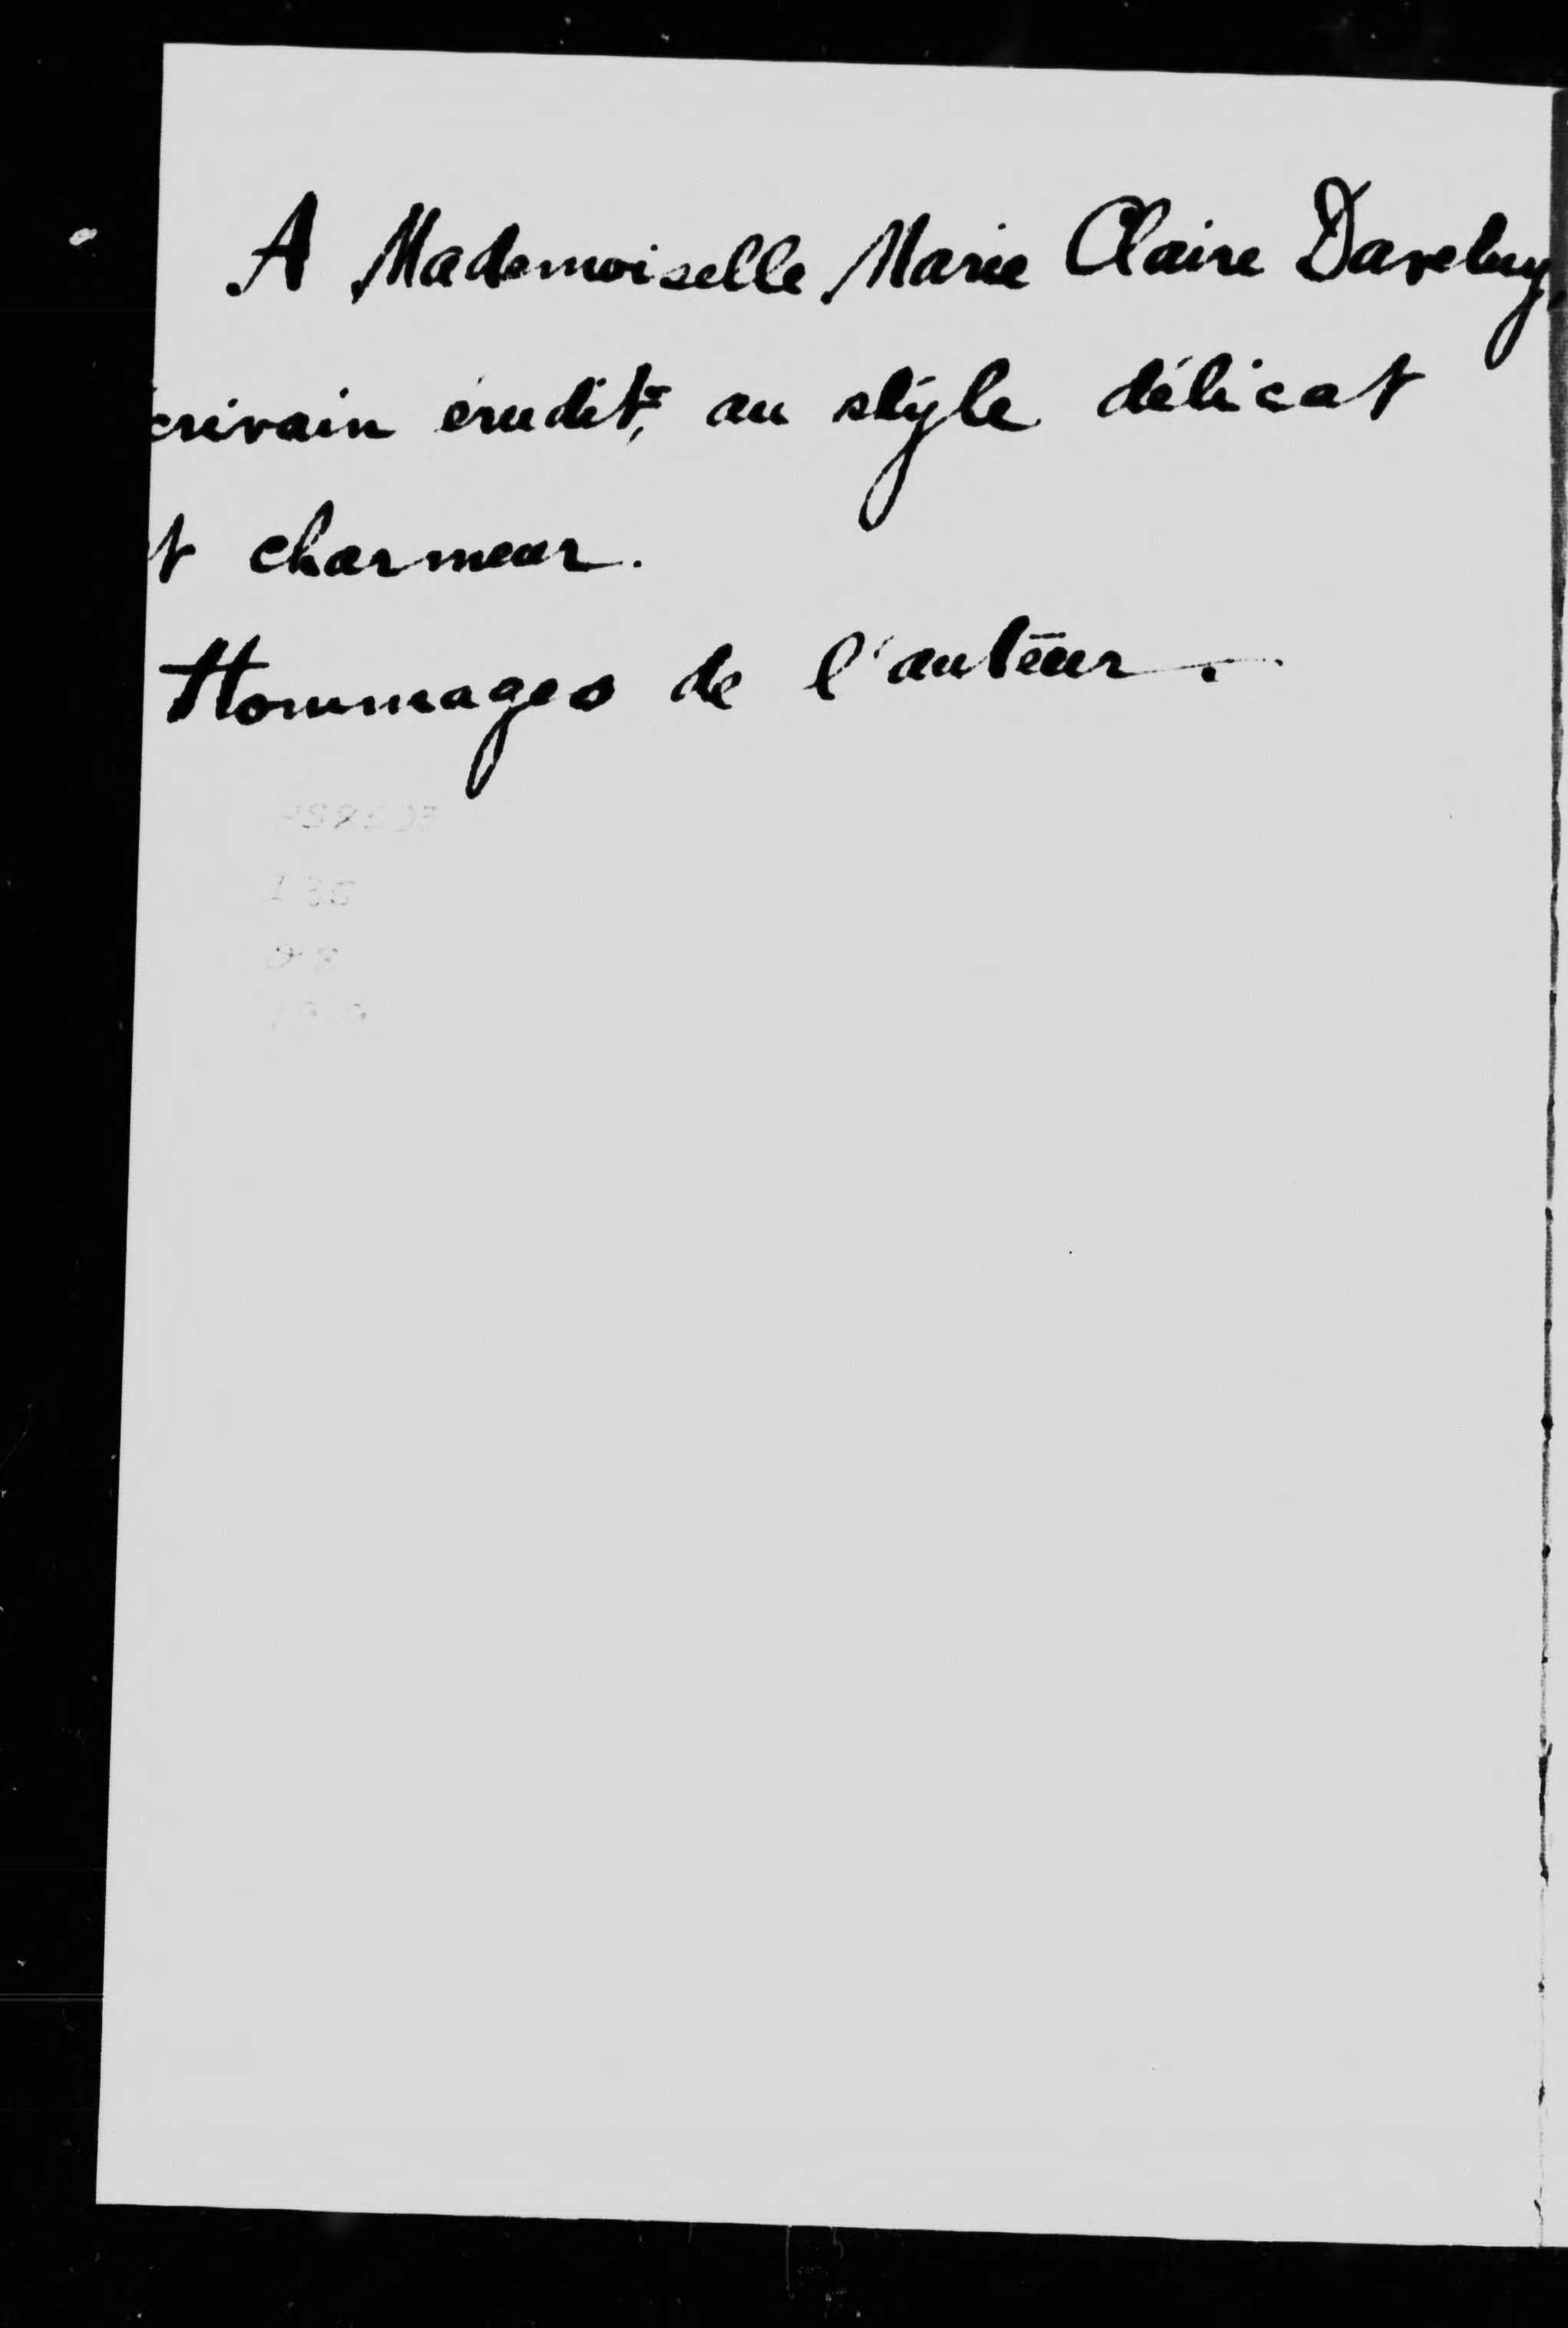 A Mademoiselle Marie Claire Daveluy,
crivain érudit, au style délicat
t charmeur.
Hommages de l'auteur.